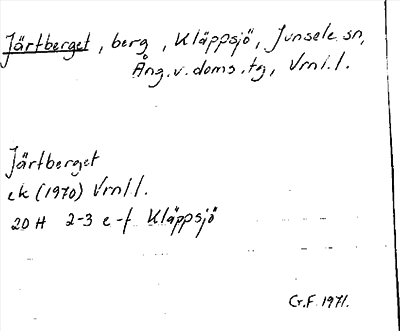 Järtberget, berg, Kläppsjö, Junsele sn,
Ång. v. doms. tg, Vrnl. l.
Järtberget
ek (1970) Vrnl l.
20 H 2-3 e-f Kläppsjö
G.F. 1971.